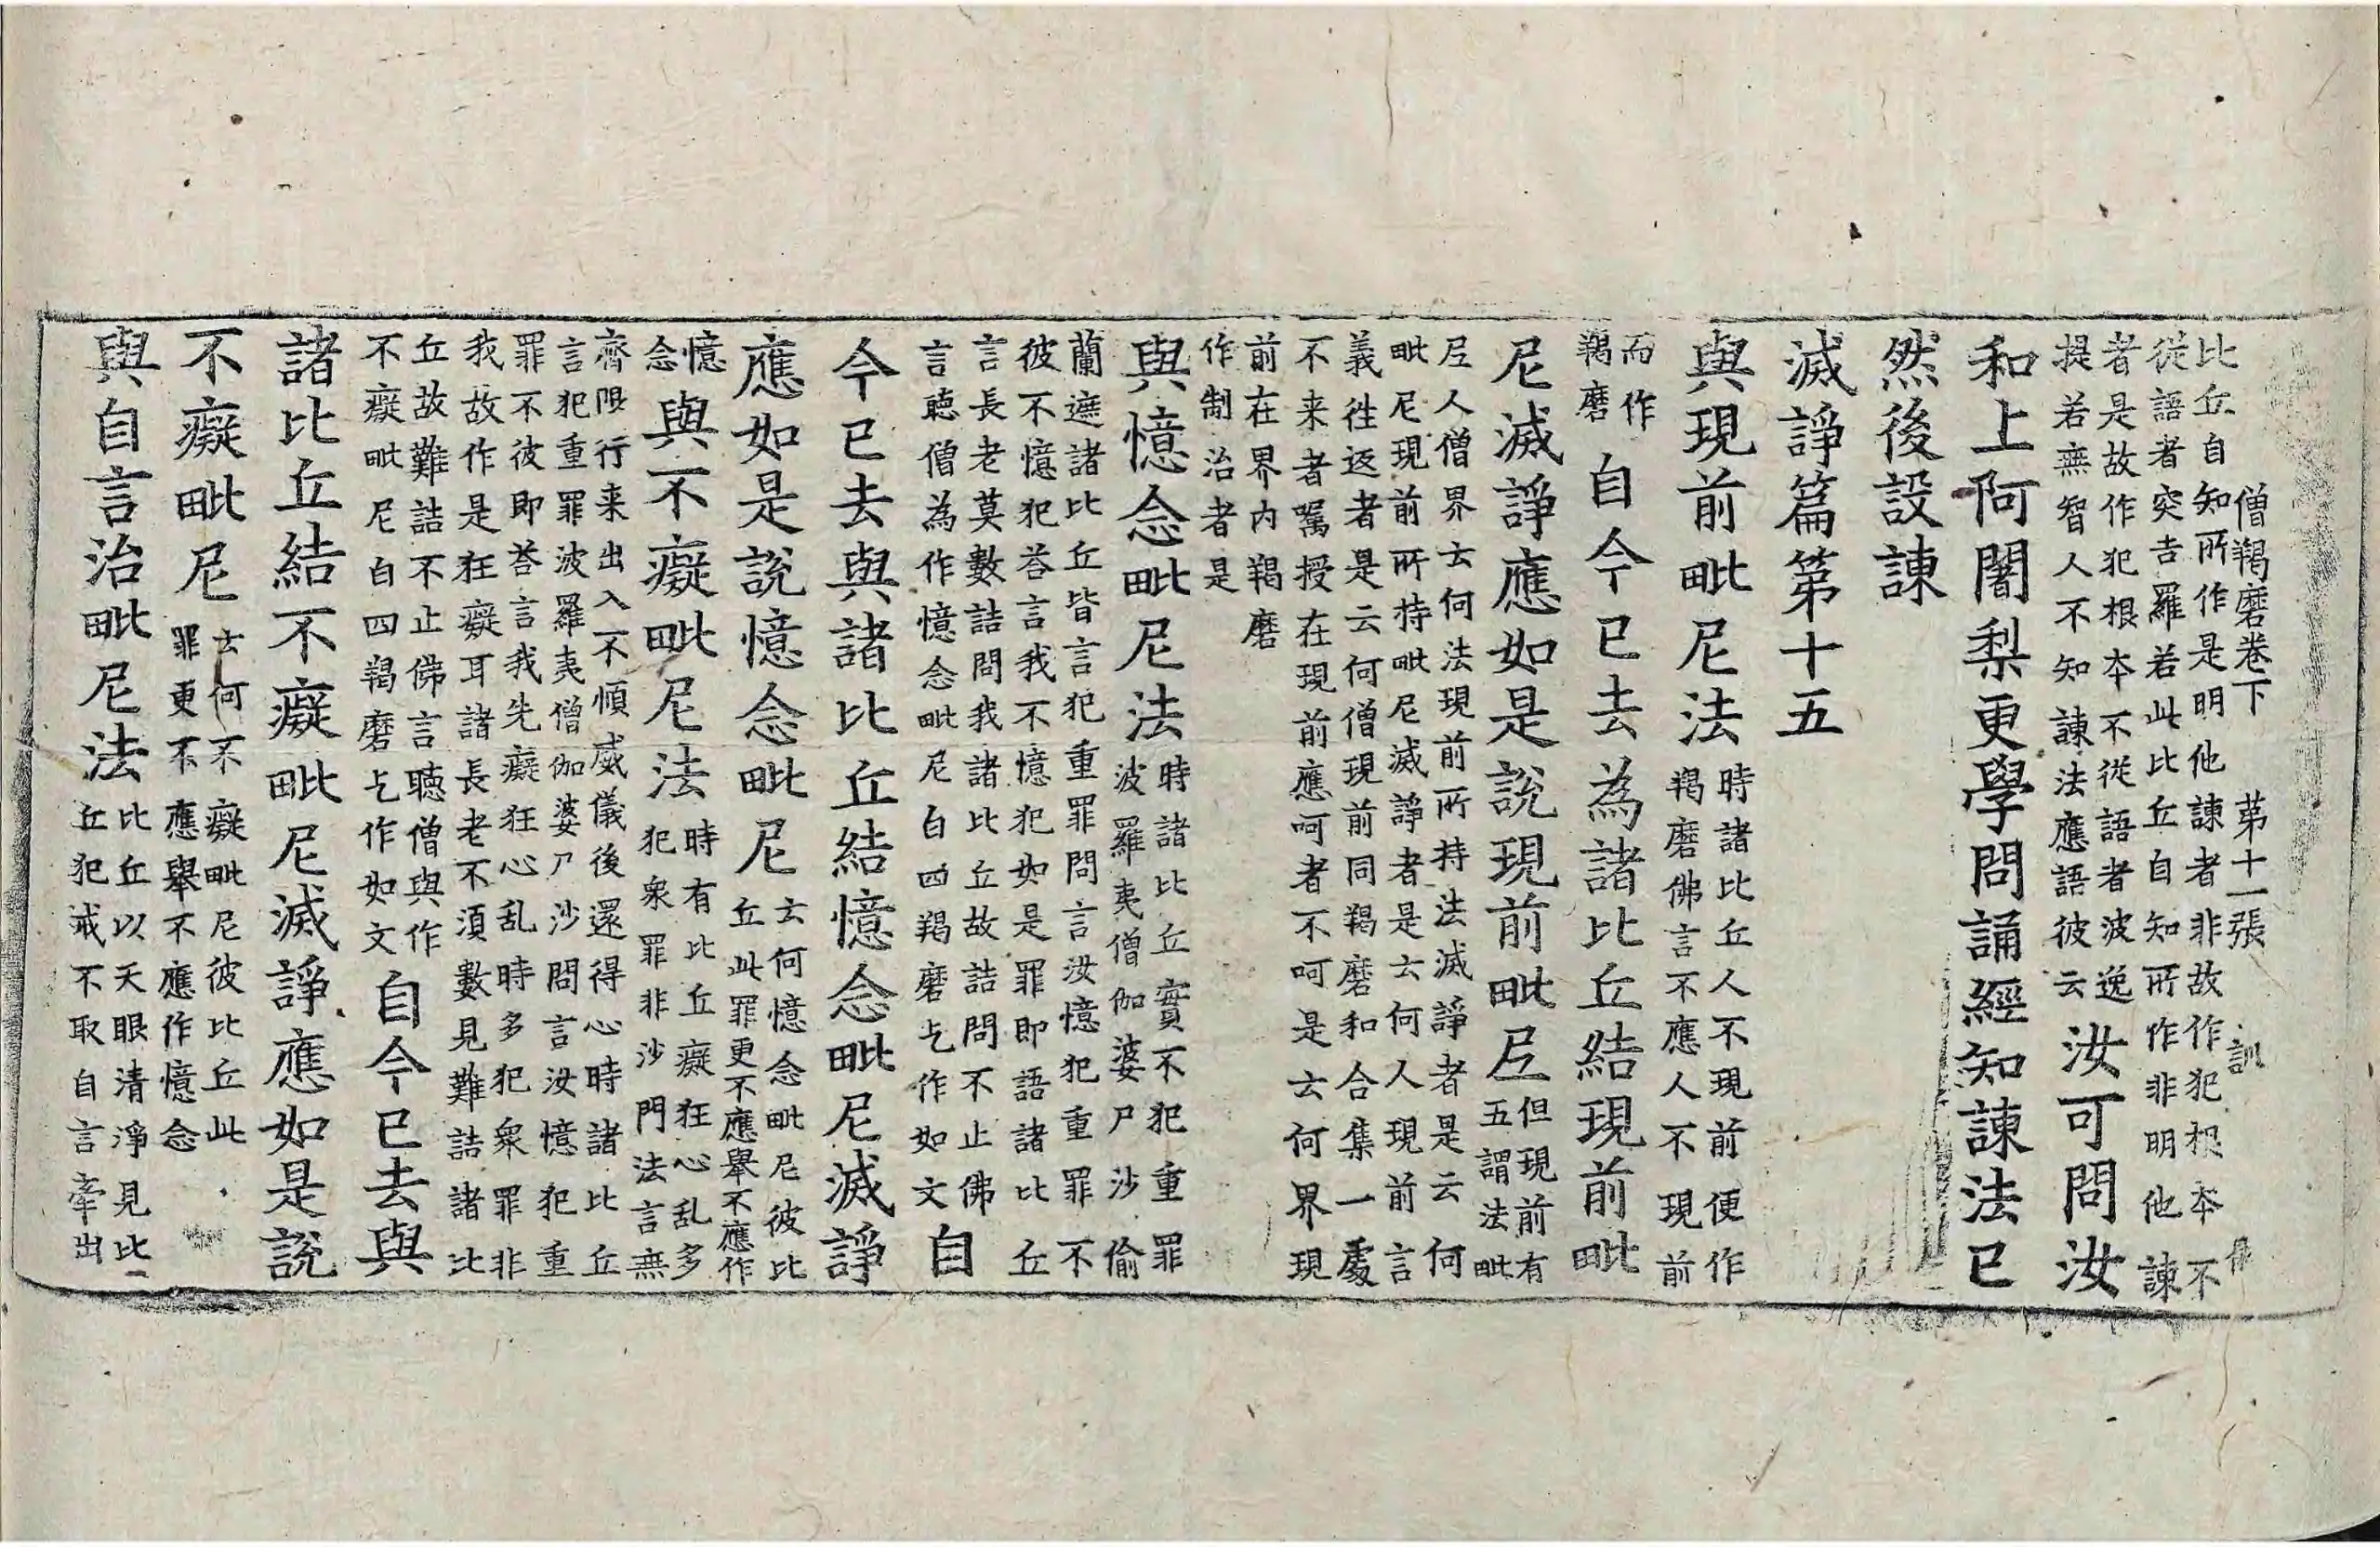 僧羯磨卷下 第十一張 訓
比丘自知所作是明他諫者非故作犯根本不
從語者突吉羅若此比丘自知所作非明他諫
者是故作犯根本不從語者波逸
提若無智人不知諫法應語彼云
汝可問汝
和上阿闍梨更學問誦經知諫法已
然後設諫
滅諍篇第十五
與現前毗尼法
時諸比丘人不現前便作
羯磨佛言不應人不現前
而作
羯磨
自今已去為諸比丘結現前毗
尼滅諍應如是說現前毗尼
但現前有
五謂法毗
尼人僧界云何法現前所持法滅諍者是云何
毗尼現前所持毗尼滅諍者是云何人現前言
義往返者是云何僧現前同羯磨和合集一處
不来者囑授在現前應呵者不呵是云何界現
前在界内羯磨
作制治者是
與憶念毗尼法
時諸比丘實不犯重罪
波羅夷僧伽婆尸沙偷
蘭遮諸比丘皆言犯重罪問言汝憶犯重罪不
彼不憶犯荅言我不憶犯如是罪即語諸比丘
言長老莫數詰問我諸比丘故詰問不止佛
言聽僧為作憶念毗尼白四羯磨乞作如文
自
今已去與諸比丘結憶念毗尼滅諍
應如是說憶念毗尼
云何憶念毗尼彼比
丘此罪更不應舉不應作
憶
念
與不癡毗尼法
時有比丘癡狂心乱多
犯衆罪非沙門法言無
齊限行来出入不順威儀後還得心時諸比丘
言犯重罪波羅夷僧伽婆尸沙問言汝憶犯重
罪不彼即荅言我先癡狂心乱時多犯衆罪非
我故作是狂癡耳諸長老不須數見難詰諸比
丘故難詰不止佛言聽僧與作
不癡毗尼白四羯磨乞作如文
自今已去與
諸比丘結不癡毗尼滅諍應如是說
不癡毗尼
云何不癡毗尼彼比丘此
罪更不應舉不應作憶念
與自言治毗尼法
比丘以天眼清淨見比
丘犯戒不取自言牽出